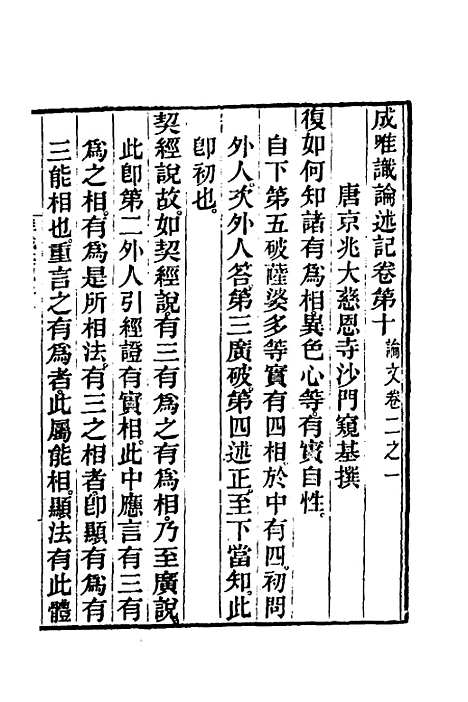 成唯識論述記卷第十 論文卷二之一
唐京兆大慈恩寺沙門窺基撰
復如何知諸有爲相異色心等有實自性。
自下第五破薩婆多等實有四相於中有四。初問
外人。次外人答。第三廣破。第四述正。至下當知。此
卽初也。
契經說故。如契經說有三有爲之有爲相。乃至廣說。
此卽第二外人引經證有實相。此中應言有三有
爲之相。有爲是所相法。有三之相者。卽顯有爲有
三能相也。重言之有爲者。此屬能相。顯法有此體